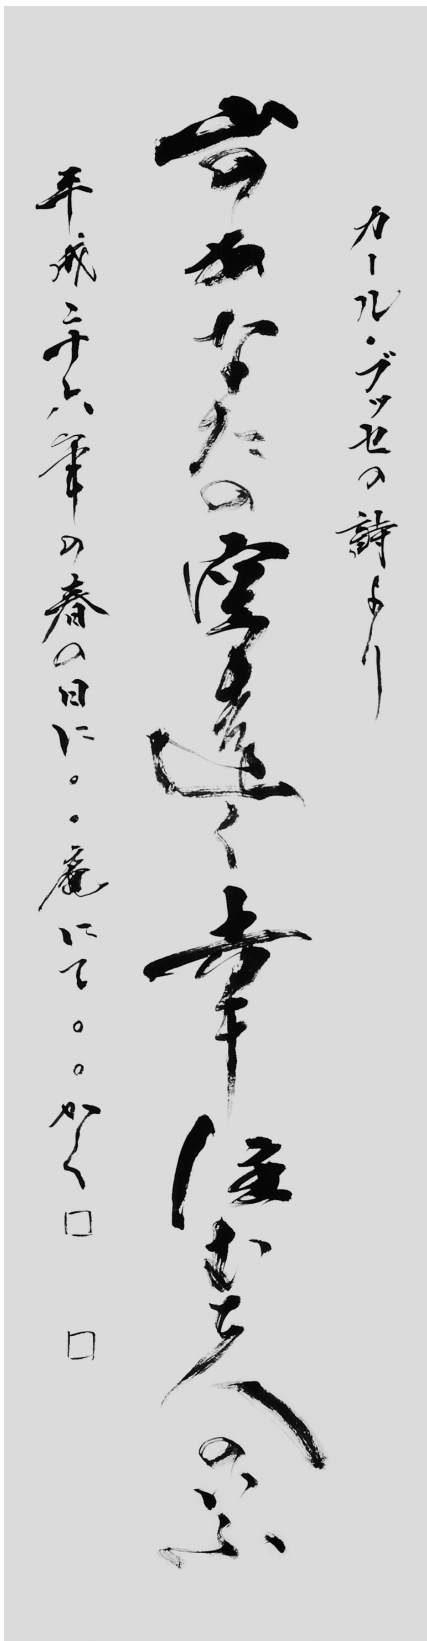 カール・ブッセの詩より
山のあなたの空遠く幸住むと人のいふ
平成二十六年の春の日に。。庵にて。。かく□ □